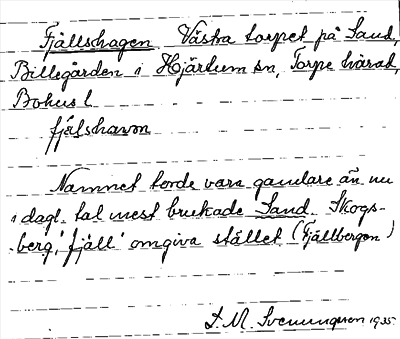 Fjällshagen Västra torpet på Sand,
Billegården i Hjärtum sn, Torpe härad,
Bohusl.
fjälshavvn
Namnet torde vara gamlare än nu
i dagl. tal mest brukade Sand. Skogs-
-berg, 'fjäll' omgiva stället (Fjällbergen)
S. M. Svenungsson 1935.